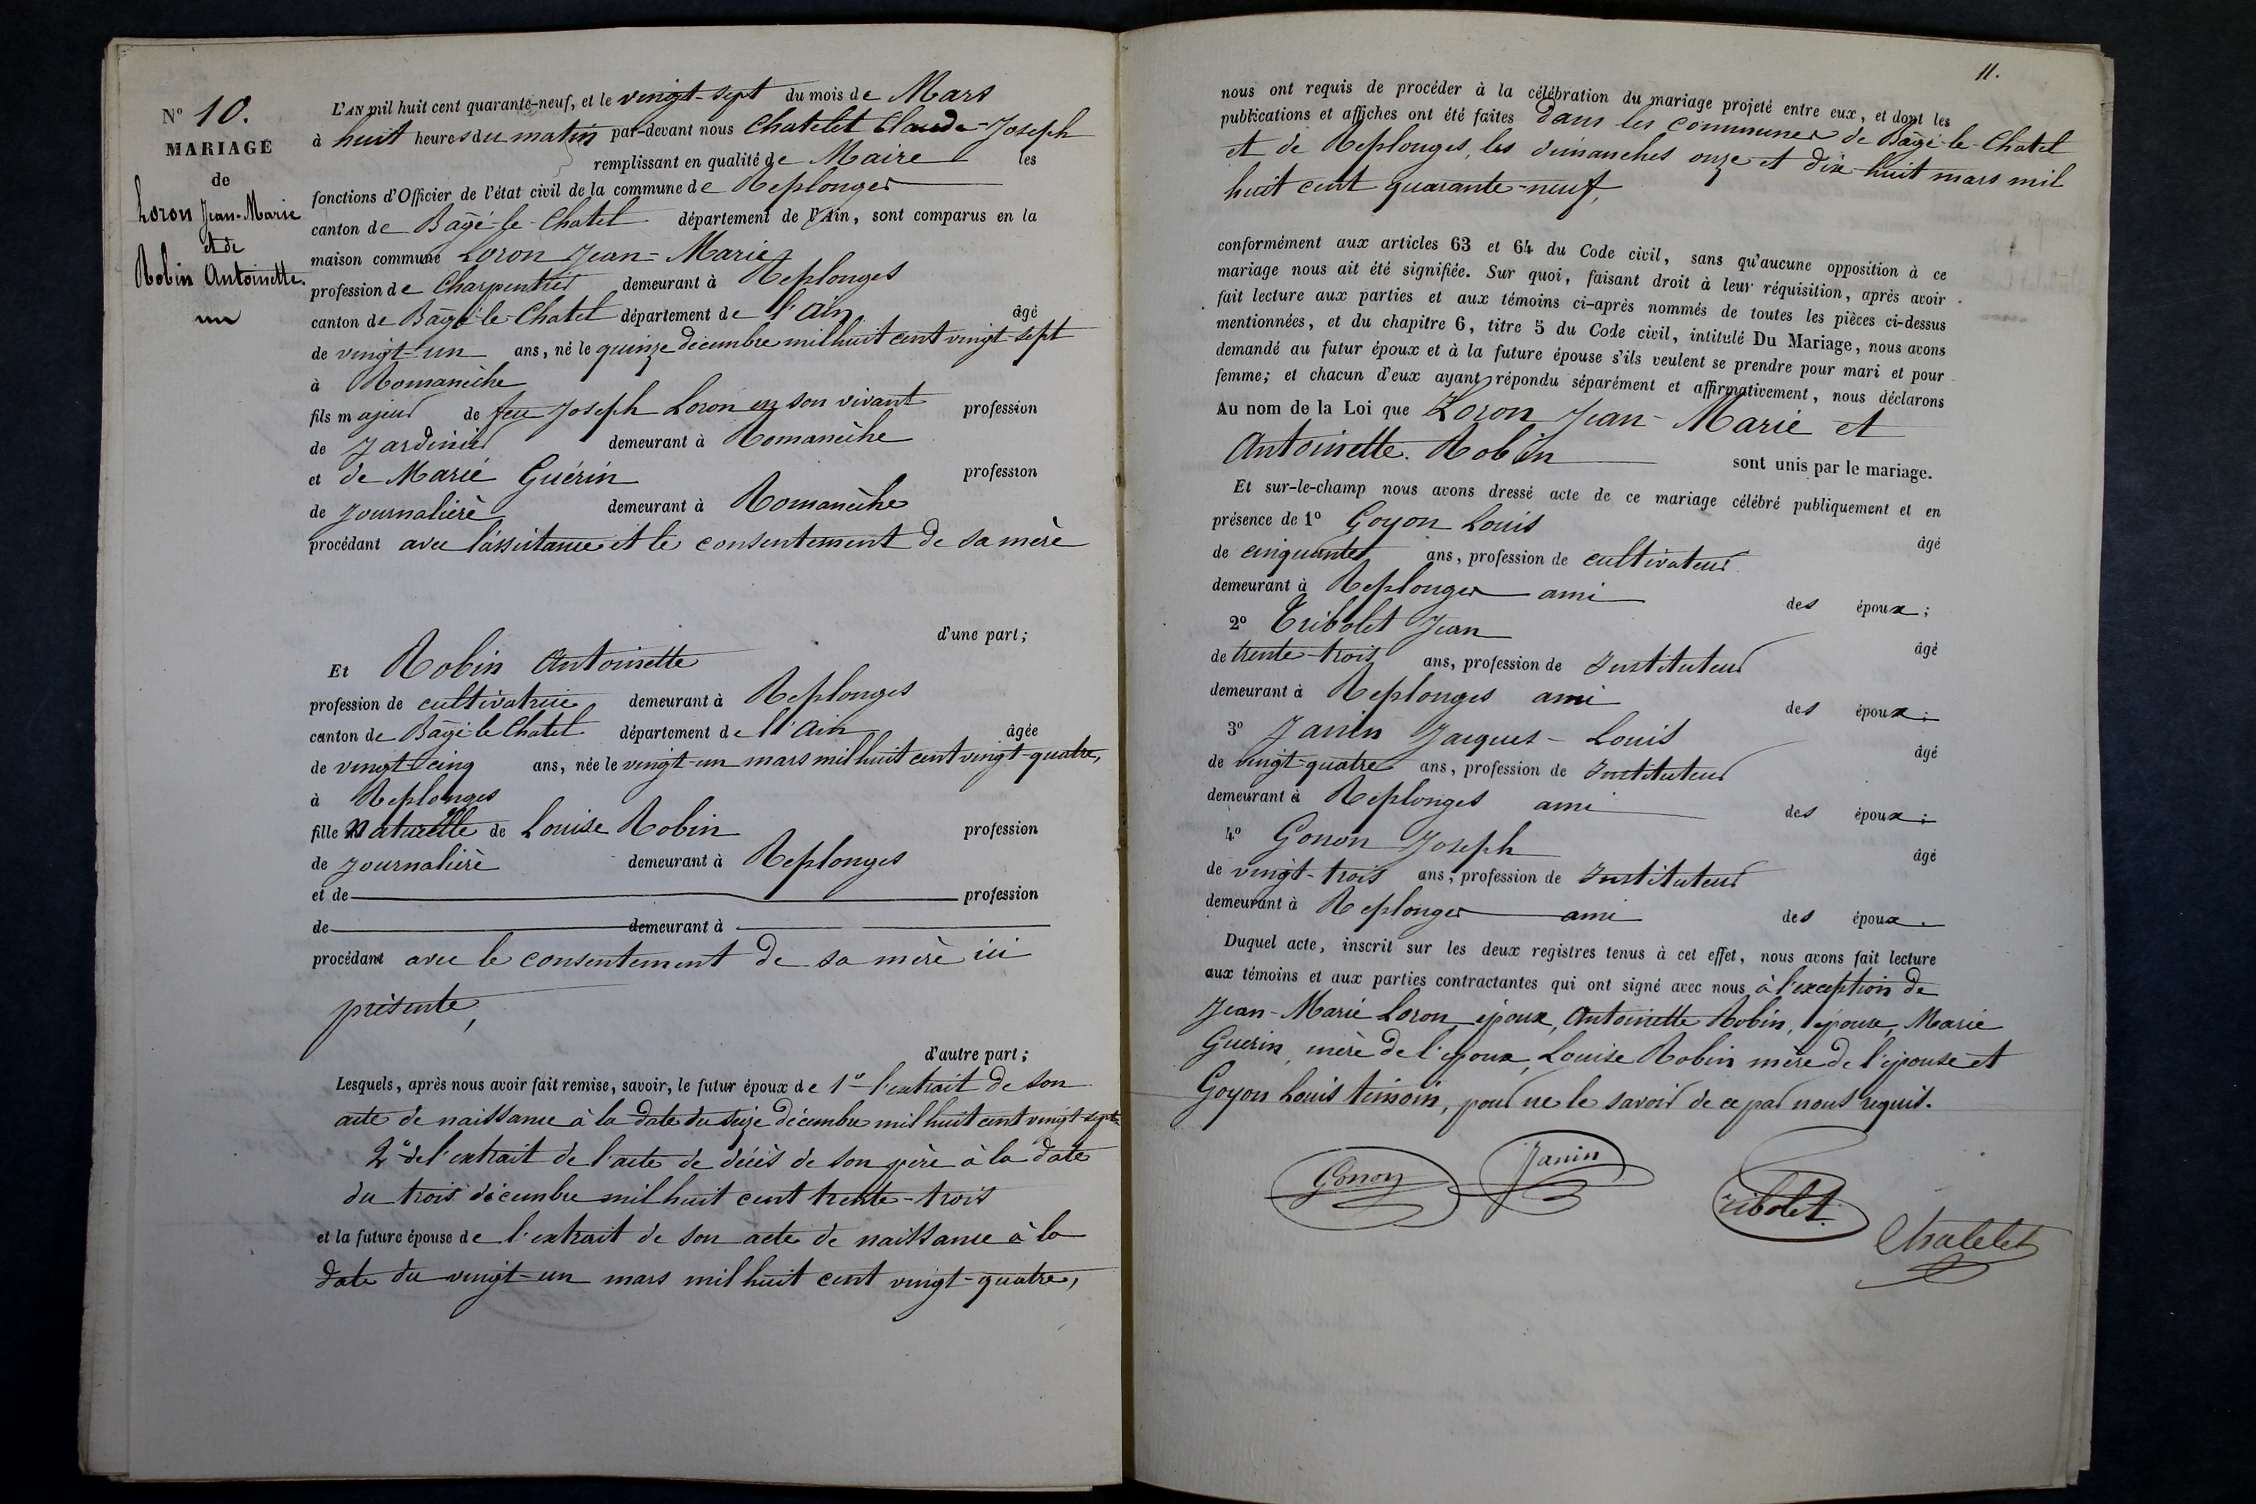 N° 10.
MARIAGE
de
Loron Jean-Marie
et de
Robin Antoinette.
L'AN mil huit cent quarante-neuf, et le vingt-sept du mois de Mars
à huit heures du matin par-devant nous Chatelet Claude-Joseph
remplissant en qualité de Maire les
fonctions d'Officier de l'état civil de la commune de Replonges
canton de Bagé-le-Chatel département de l'Ain, sont comparus en la
maison commune Loron Jean-Marie
profession de Charpentier demeurant à Replonges
canton de Bagé-le-Chatel département de l'Ain âgé
de vingt-un ans, né le quinze décembre mil huit cent vingt-sept
à Romanèche
fils majeur de feu Joseph Loron en son vivant profession
de Jardinier demeurant à Romanèche
et de Marie Guérin profession
de journalière demeurant à Romanèche
procédant avec l'assistance et le consentement de sa mère
d'une part;
Et Robin Antoinette
profession de cultivatrice demeurant à Replonges
canton de Bagé-le-Chatel département de l'Ain âgée
de vingt-cinq ans, née le vingt-un mars mil huit cent vingt-quatre,
à Replonges
fille naturelle de Louise Robin profession
de journalière demeurant à Replonges
et de profession
de demeurant à
procédant avec le consentement de sa mère ici
présente,
d'autre part;
Lesquels, après nous avoir fait remise, savoir, le futur époux de 1° l'extrait de son
acte de naissance à la date du seize décembre mil huit cent vingt-sept
2° de l'extrait de l'acte de décès de son père à la date
du trois décembre mil huit cent trente-trois
et la future épouse de l'extrait de son acte de naissance à la
date du vingt-un mars mil huit cent vingt-quatre,
11.
nous ont requis de procéder à la célébration du mariage projeté entre eux, et dont les
publications et affiches ont été faites dans les communes de Bagé-le-Chatel
et de Replonges, les dimanches onze et dix-huit mars mil
huit cent quarante-neuf,
conformément aux articles 63 et 64 du Code civil, sans qu'aucune opposition à ce
mariage nous ait été signifiée. Sur quoi, faisant droit à leur réquisition, après avoir
fait lecture aux parties et aux témoins ci-après nommés de toutes les pièces ci-dessus
mentionnées, et du chapitre 6, titre 5 du Code civil, intitulé Du Mariage, nous avons
demandé au futur époux et à la future épouse s'ils veulent se prendre pour mari et pour
femme; et chacun d'eux ayant répondu séparément et affirmativement, nous déclarons
Au nom de la Loi que Loron Jean-Marie et
Antoinette Robin sont unis par le mariage.
Et sur-le-champ nous avons dressé acte de ce mariage célébré publiquement et en
présence de 1° Goyon Louis âgé
de cinquante ans, profession de cultivateur
demeurant à Replonges ami des époux;
2° Tribolet Jean âgé
de trente-trois ans, profession de Instituteur
demeurant à Replonges ami des époux;
3° Janin Jacques-Louis âgé
de vingt-quatre ans, profession de Instituteur
demeurant à Replonges ami des époux;
4° Gonon Joseph âgé
de vingt-trois ans, profession de Instituteur
demeurant à Replonges ami des époux.
Duquel acte, inscrit sur les deux registres tenus à cet effet, nous avons fait lecture
aux témoins et aux parties contractantes qui ont signé avec nous à l'exception de
Jean-Marie Loron époux, Antoinette Robin, épouse, Marie
Guérin, mère de l'époux, Louise Robin mère de l'épouse et
Goyon Louis témoin, pour ne le savoir de ce par nous requis.
Gonon Janin Tribolet
Chatelet